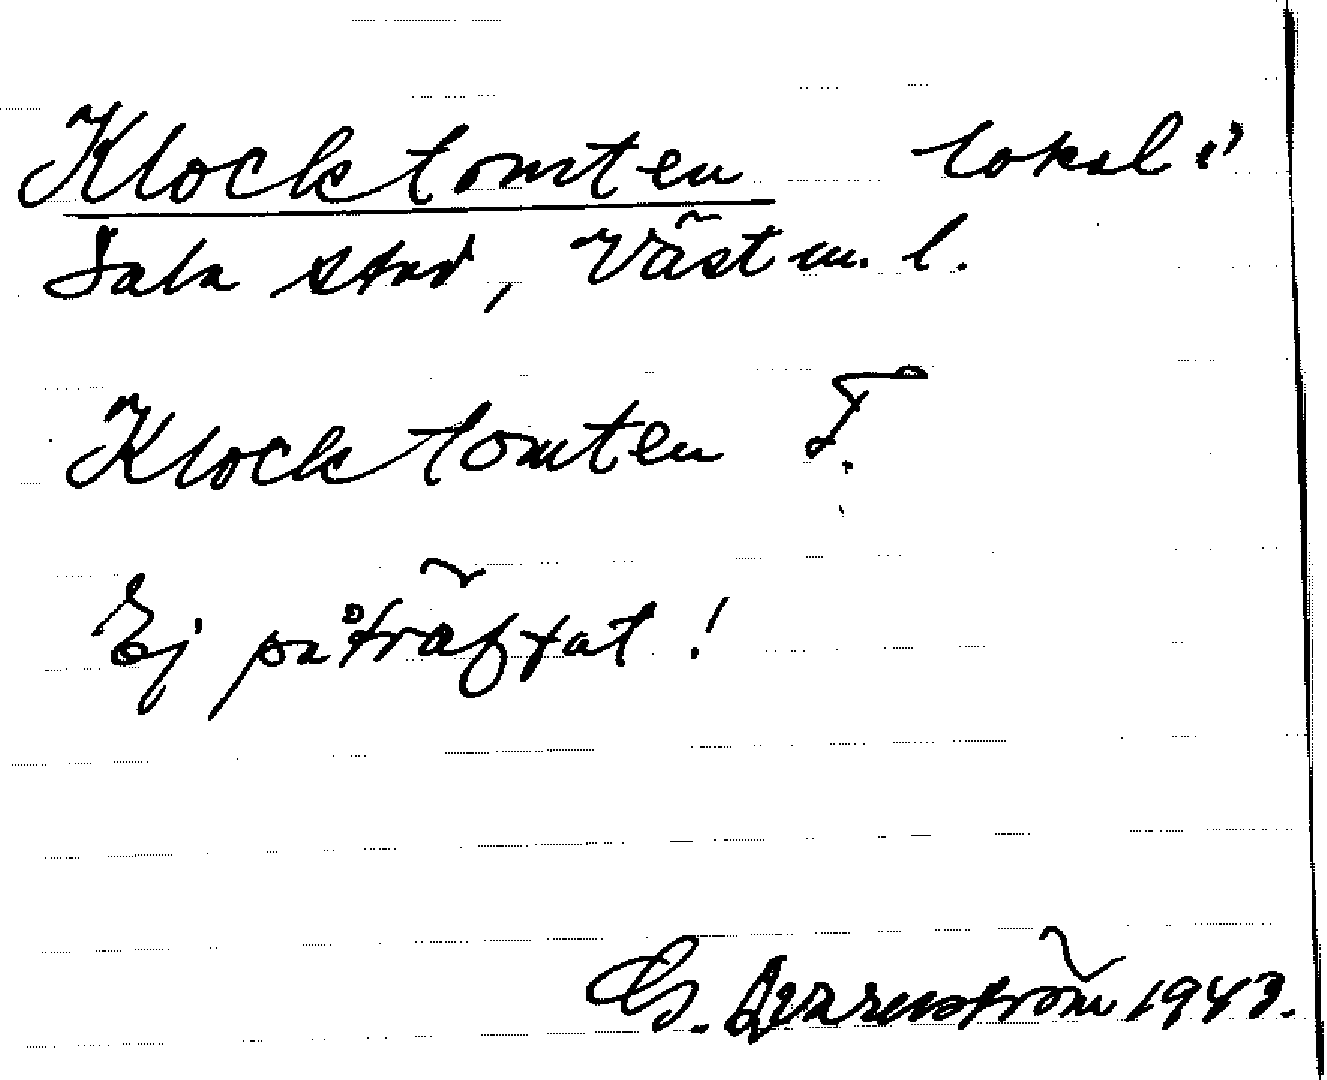 Klocktomten lokal?
Sala stad, Västm. l.
Klocktomten T.
Ej påträffat!
G. Qvarnström 1943.